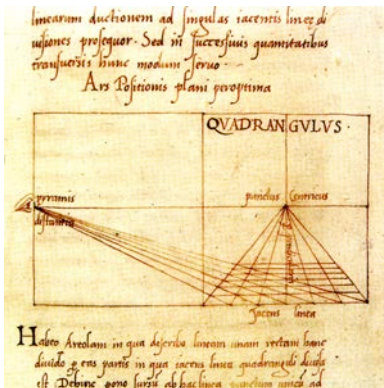 linearum ductionem ad singulas iacentis lineę di
uisiones prosequor. Sed in successiuis quantitatibus
transuersis hunc modum seruo.
Ars Positionis plani peroptima
QVADRANGVLVS
pyramis
punctus Centricus
distantia
Iacens linea
Habeo Areolam in qua describo lineam unam rectam hanc
diuido p eas partis in qua iacens linea quadranguli diuisa
est Debinc pono sursu ab hac linea punctum unicũ ad